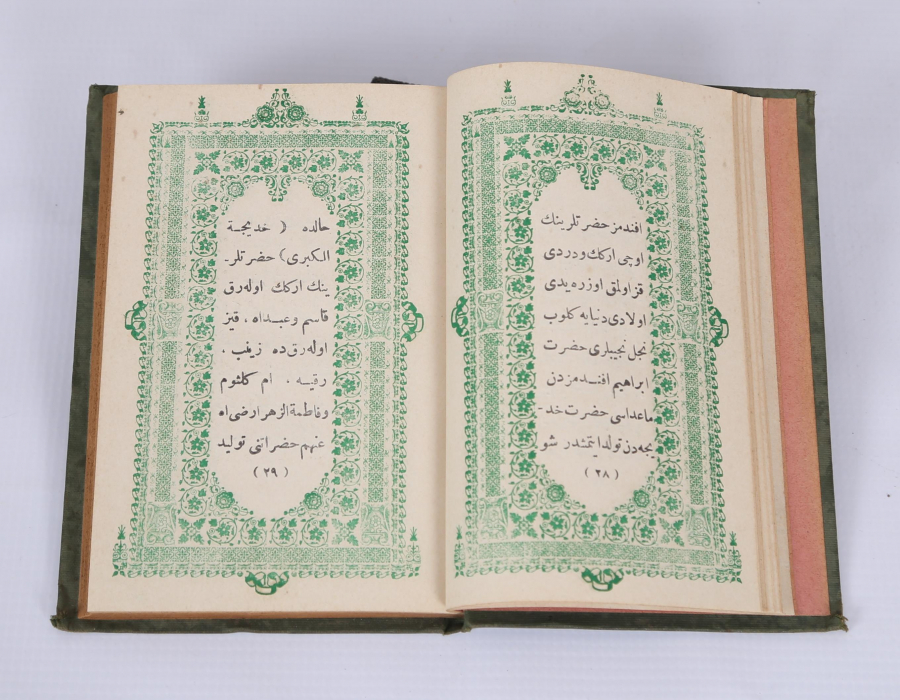 افندمز حضرتلرینك
اوچی اركك ودردی
قز اولمق اوزره یدی
اولادی دنیایه كلوب
نجل نجیبلری حضرت
ابراهیم افنـدمزدن
ماعداسی حضرت خد-
یجه دن تولد ایتمشدر شو
(٢٨)
حالده ( خدیجـة
الـكبری) حضرتلر-
ینك اركك اوله رق
قاسم وعبـداه ، قیز
اوله رق ده زینب ،
رقیـه ، ام كلثوم
وفاطمة الزهرا رضی اه
عنهم حضراتنی تولید
(٢٩)